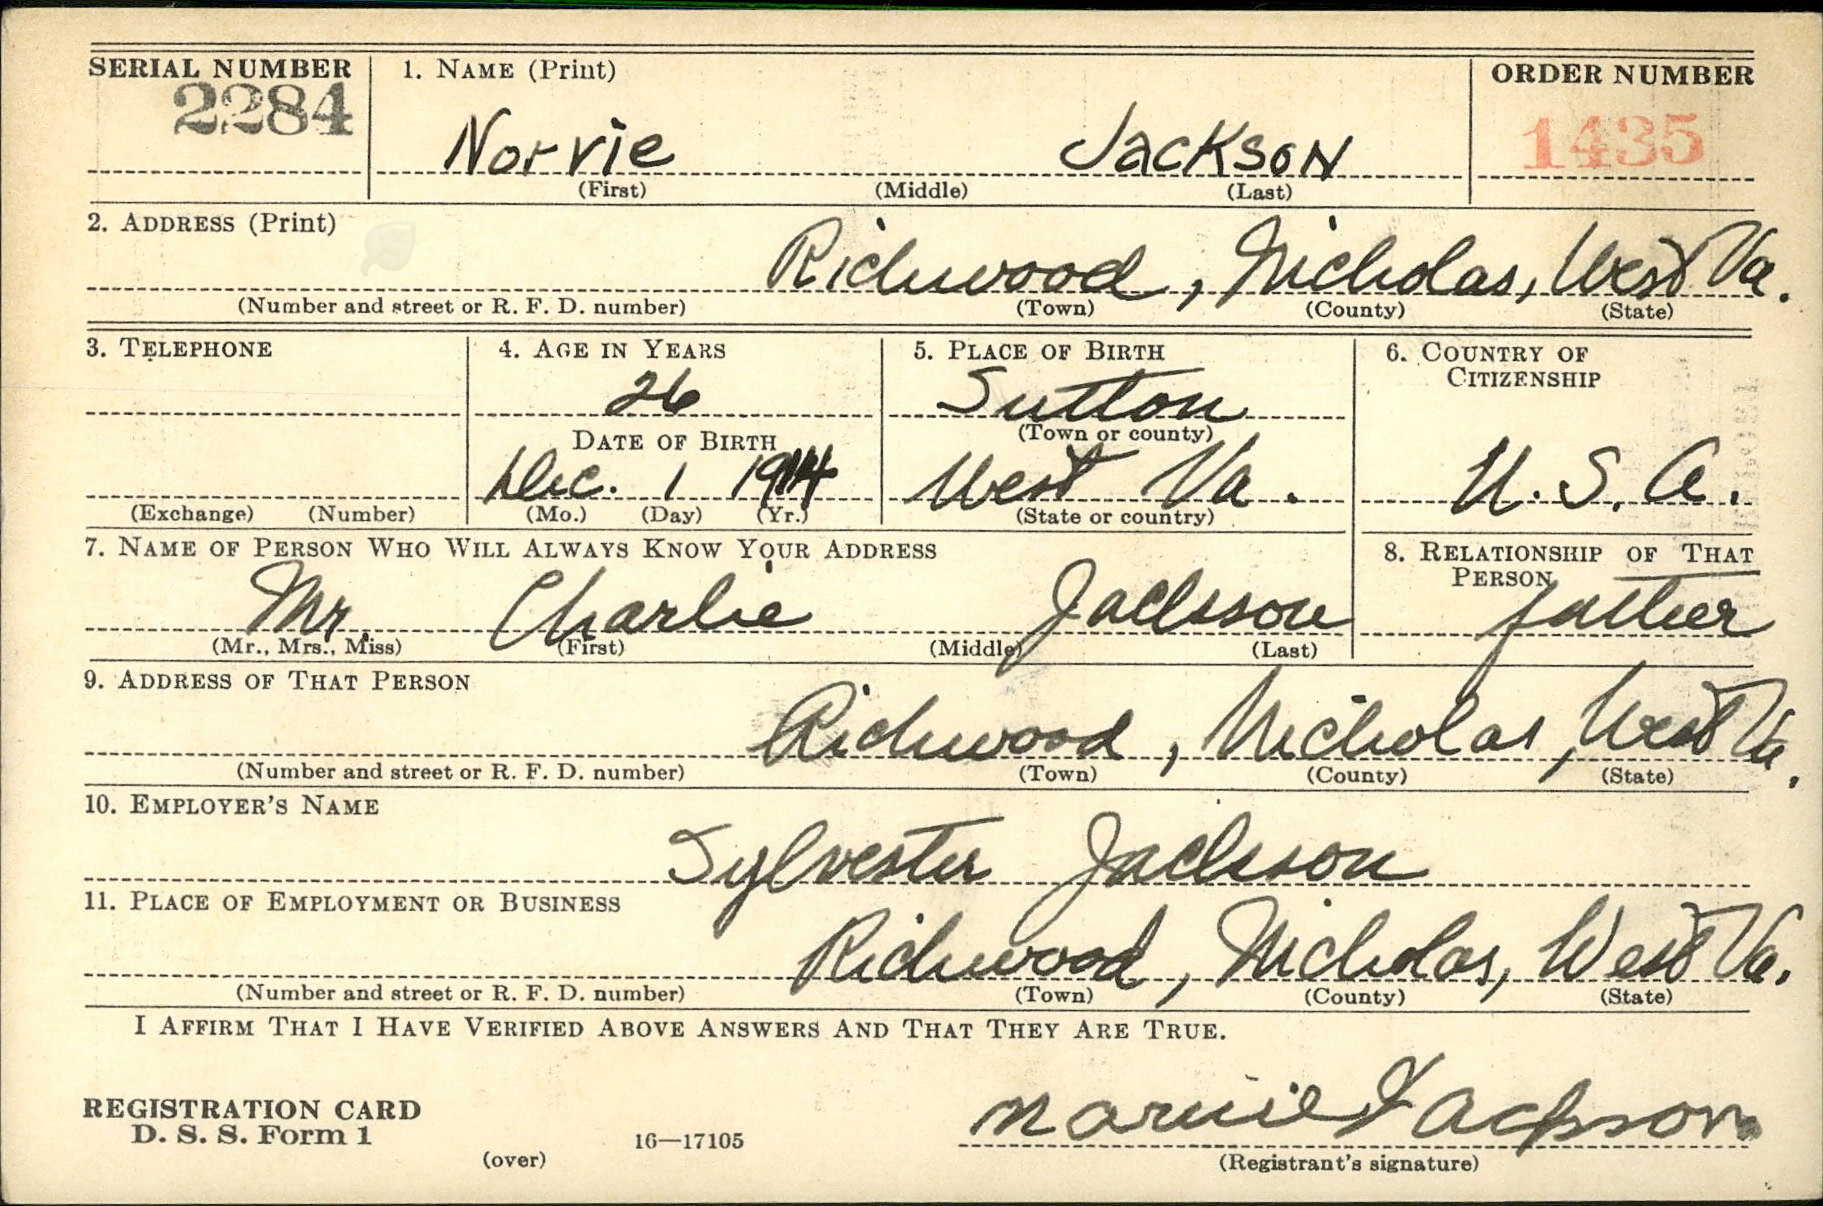 SERIAL NUMBER 1. NAME (Print) ORDER NUMBER
2284 Norvie Jackson 1435
(First) (Middle) (Last)
2. ADDRESS (Print)
Richwood, Nicholas, West Va.
(Number and street or R. F. D. number) (Town) (County) (State)
3. TELEPHONE 4. AGE IN YEARS 5. PLACE OF BIRTH 6. COUNTRY OF CITIZENSHIP
26 Sutton
DATE OF BIRTH (Town or county)
Dec. 1 1914 West Va. U. S. A.
(Exchange) (Number) (Mo.) (Day) (Yr.) (State or country)
7. NAME OF PERSON WHO WILL ALWAYS KNOW YOUR ADDRESS 8. RELATIONSHIP OF THAT PERSON
Mr. Charlie Jackson father
(Mr., Mrs., Miss) (First) (Middle) (Last)
9. ADDRESS OF THAT PERSON
Richwood, Nicholas, West Va.
(Number and street or R. F. D. number) (Town) (County) (State)
10. EMPLOYER'S NAME
Sylvester Jackson
11. PLACE OF EMPLOYMENT OR BUSINESS
Richwood, Nicholas, West Va.
(Number and street or R. F. D. number) (Town) (County) (State)
I AFFIRM THAT I HAVE VERIFIED ABOVE ANSWERS AND THAT THEY ARE TRUE.
REGISTRATION CARD
D. S. S. Form 1 Norvie Jackson
(over) 16—17105 (Registrant's signature)